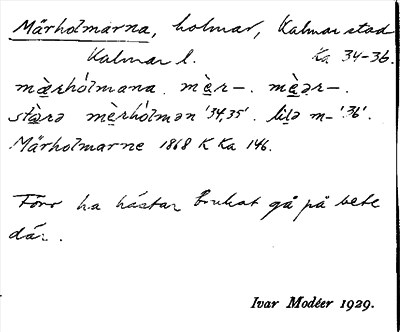 Märholmarna, holmar, Kalmar stad
Kalmar l. Ka 34-36.
mæ̀rhólmana. mè̱r–. mè̱ər–.
stɷ̀rə mè̱rhólmən '34,35'. lilə m–'.36'.
Märholmarne 1868 K Ka 146.
Förr ha hästar brukat gå på bete
där.
Ivar Modéer 1929.